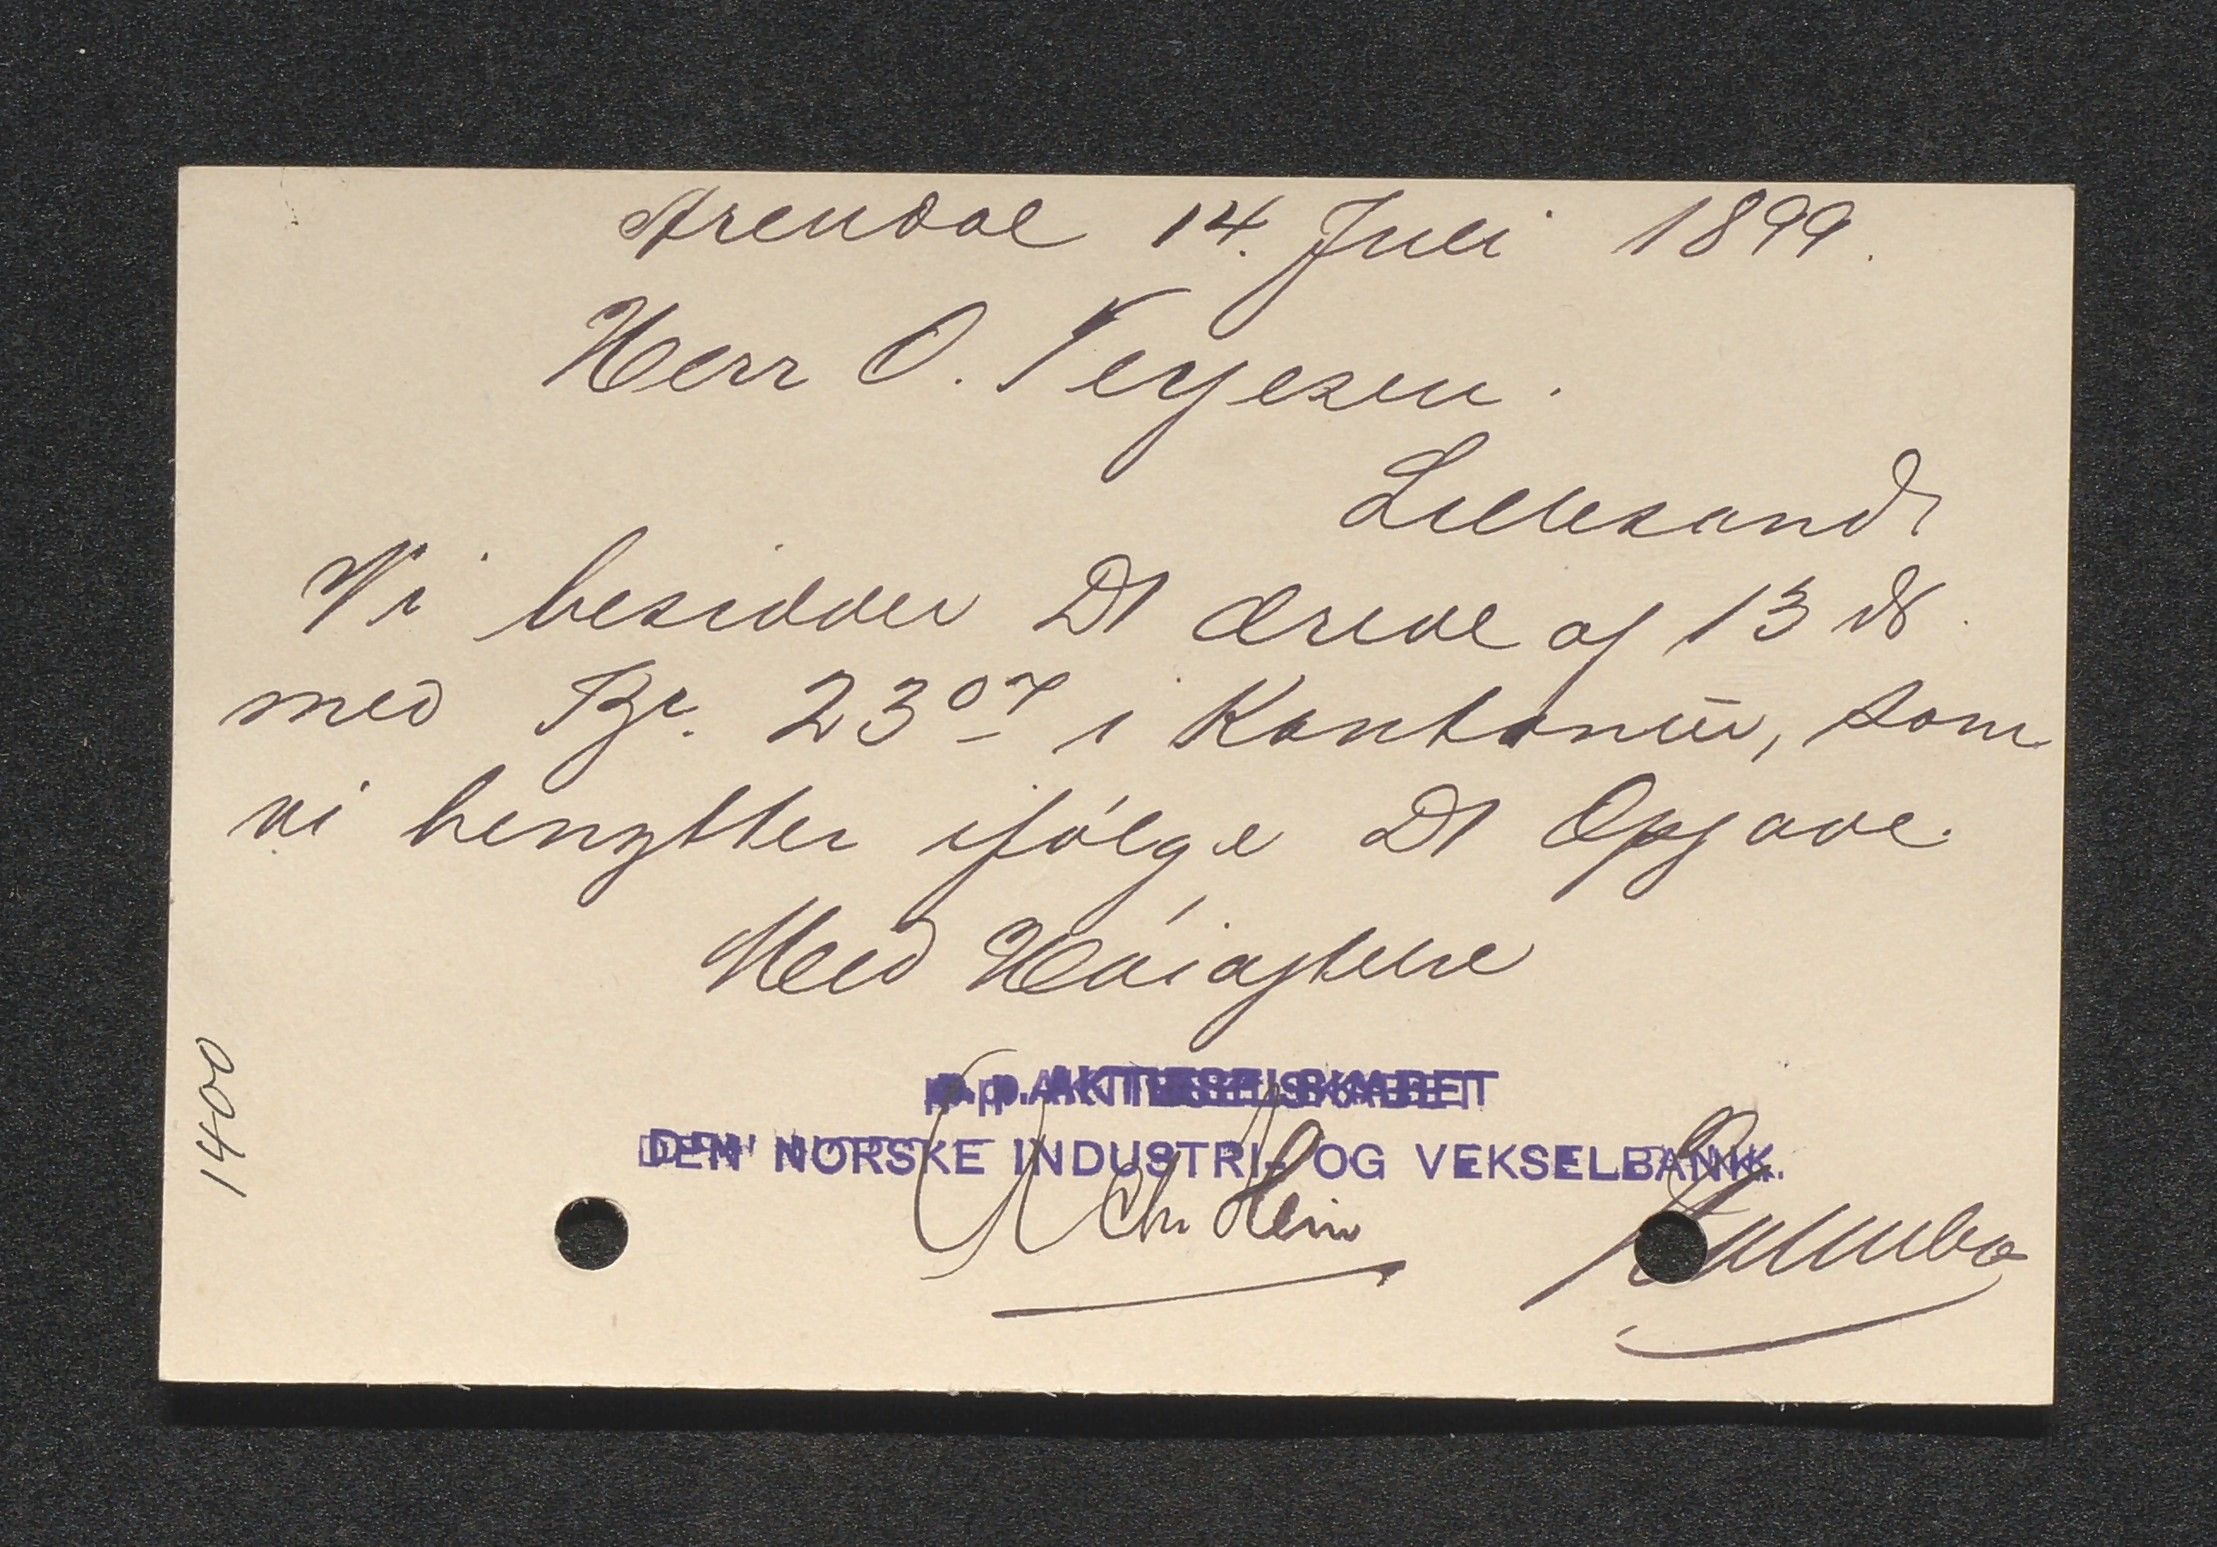 Arendal 14. Juli 1899.
Herr O. Terjesen.
Lillesand.
Vi besidder Dt ærede af 13 ds.
med Kr. 23 07 i Kontanter, som
vi benytter ifølge Dt Opgave.
Med Høiagtelse
p.p. AKTIESELSKABET
DEN NORSKE INDUSTRI- OG VEKSELBANK.
Chr Hein
1400